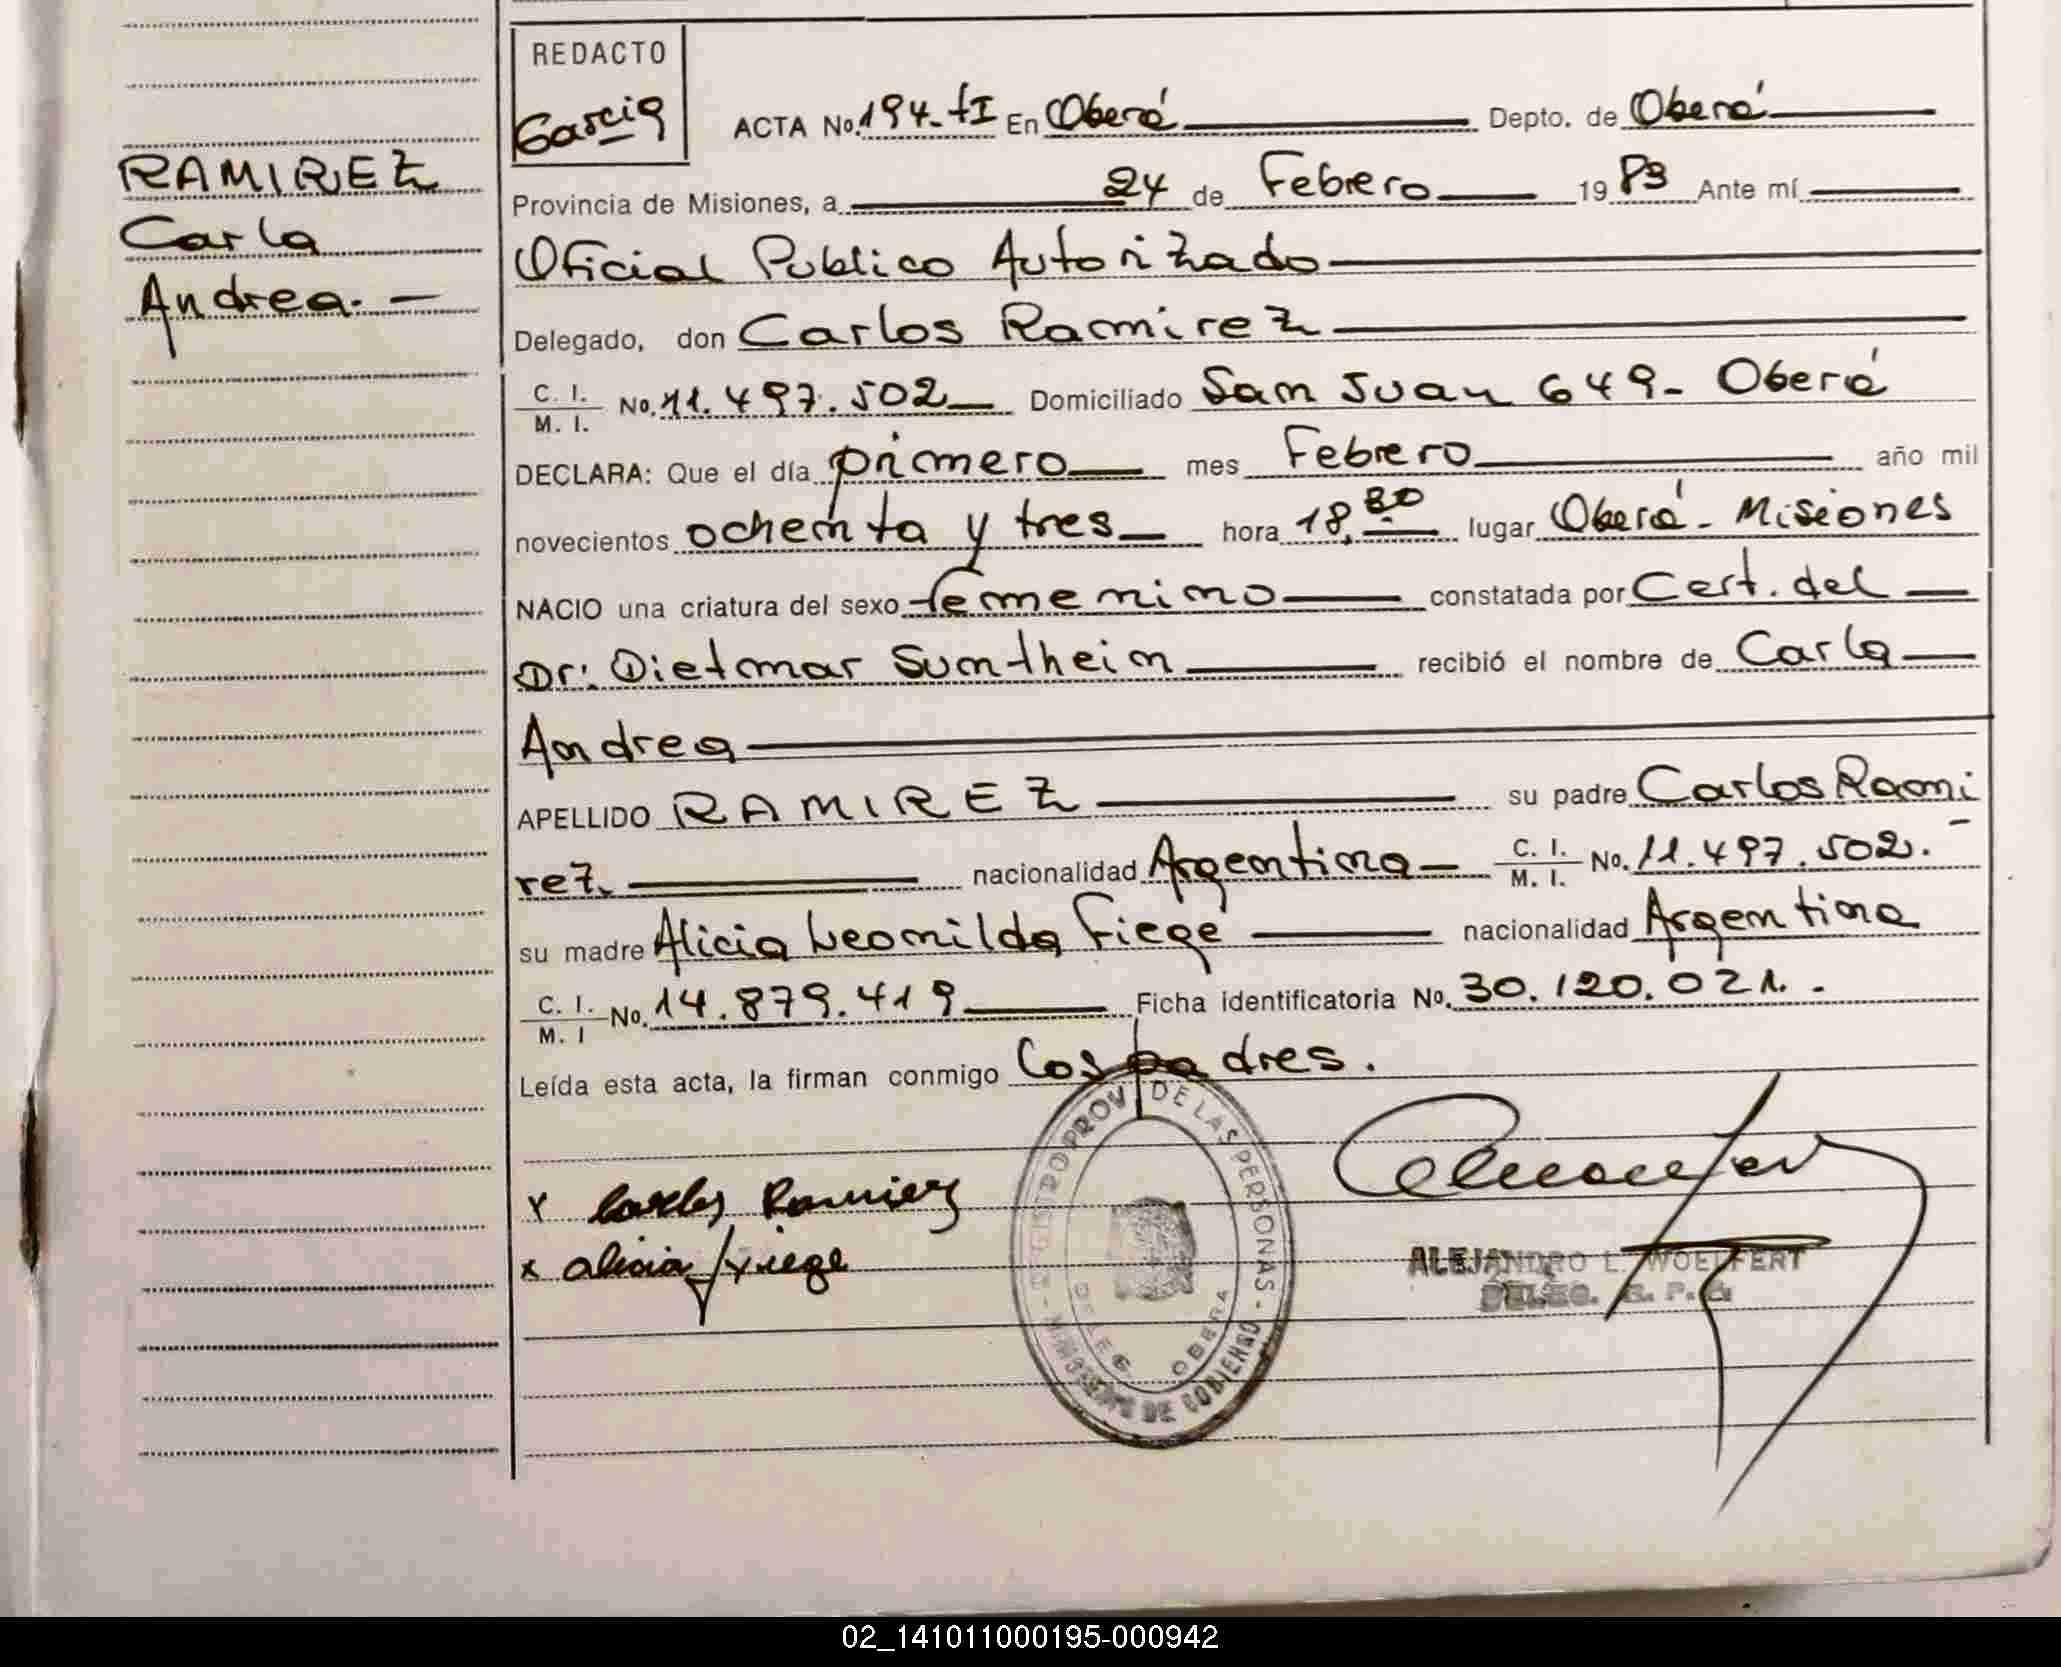 REDACTO
Garcia
ACTA No. 194-tI En Oberá Depto. de Oberá
RAMIREZ
Carla
Andrea.-
Provincia de Misiones, a 24 de Febrero 1983 Ante mí
Oficial Publico Autorizado
Delegado, don Carlos Ramirez
C. I. / M. I. No. 11.497.502 Domiciliado San Juan 649- Oberá
DECLARA: Que el día primero mes Febrero año mil
novecientos ochenta y tres hora 18,30 lugar Oberá- Misiones
NACIO una criatura del sexo femenino constatada por Cert. del
Dr: Dietmar Sumtheim recibió el nombre de Carla
Andrea
APELLIDO RAMIREZ su padre Carlos Rami
rez. nacionalidad Argentina C. I. / M. I. No. 11.497.502.-
su madre Alicia Leonilda Fiege nacionalidad Argentina
C. I. / M. I No. 14.879.419 Ficha identificatoria No. 30.120.021.-
Leída esta acta, la firman conmigo Los padres.
x Carlos Ramirez
x Alicia Fiege
REGISTRO PROV. DE LAS PERSONAS - MINISTERIO DE GOBIERNO -
DELEG. OBERA
ALEJANDRO L. WOELFERT
DELEG. R. P. P.
02_141011000195-000942